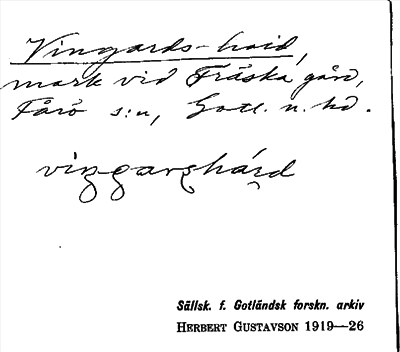 Vingards-haid,
mark vid Fråska gård,
Fårö s:n, Gotl. n. hd.
vinggarshárd
Sällsk. f. Gotländsk forskn. arkiv
HERBERT GUSTAVSON 1919—26